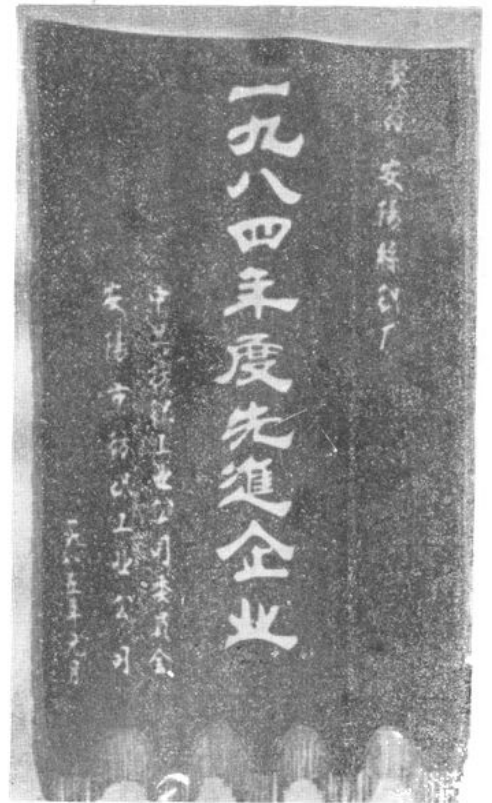 奖给 安陽絲织厂
一九八四年度先進企业
中共纺织工业公司委員会
安陽市纺织工业公司
一九八五年元月